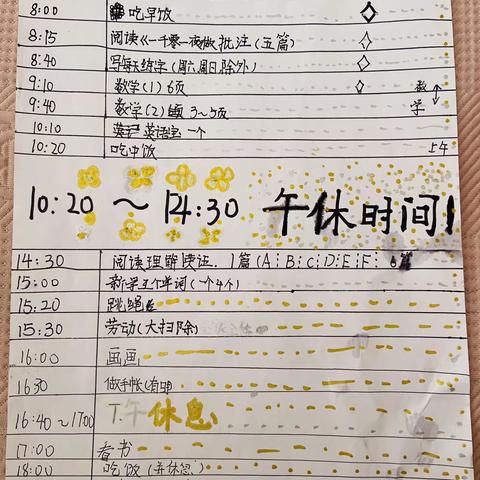 8:00 吃早饭
8:15 阅读《一千零一夜》做批注(五篇)
8:40 写每天练字(周六周日除外)
9:10 数学(1)6页
数学
9:40 数学(2) 3~5页
10:10 英语 一个
10:20 吃中饭 上午
10:20 ~ 14:30 午休时间!
14:30 阅读理解 1篇(A B C D E F 篇
15:00 新学五个单词(一个4个)
15:20 跳绳
15:30 劳动(大扫除)
16:00 画画
16:30 做手帐
16:40~1700 下午休息
17:00 看书
18:00 吃饭(并休息)